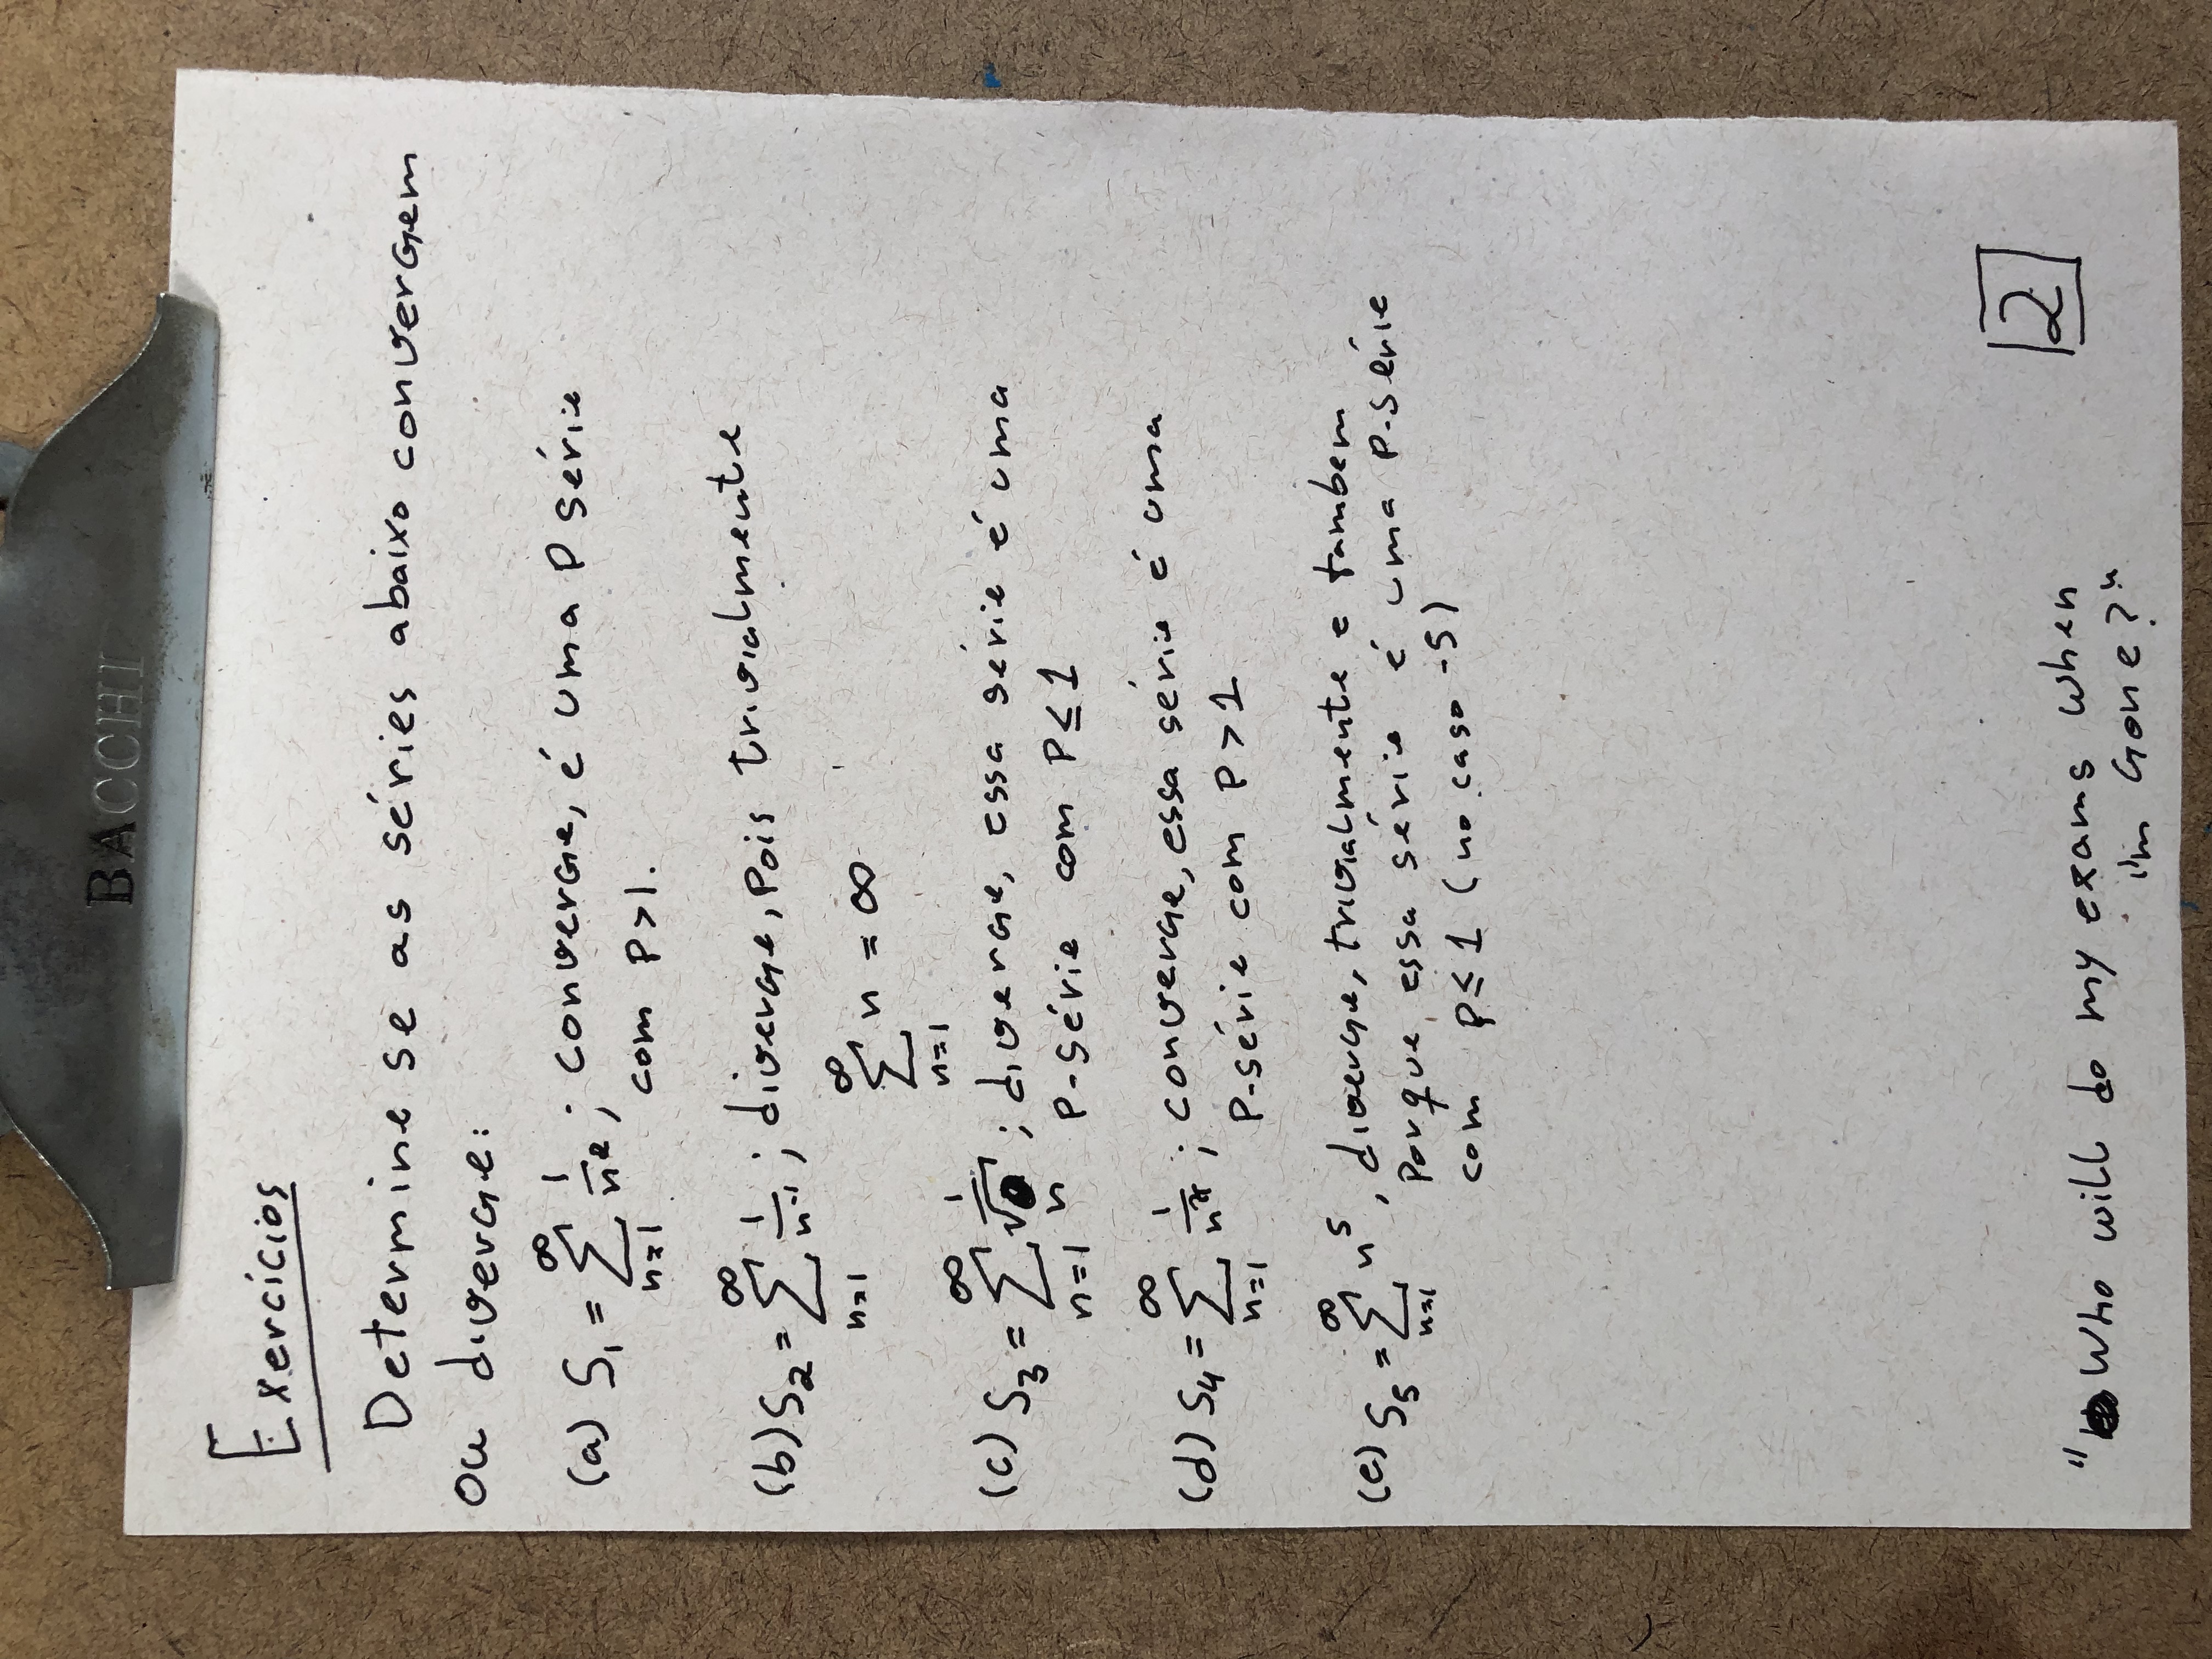 BACCHI
Exercícios
Determine se as séries abaixo convergem
ou diverge:
(a) S₁ = ∑_{n=1}^{∞} 1/n^e ; converge, é uma P série
com P>1.
(b) S₂ = ∑_{n=1}^{∞} 1/n^{-1} ; diverge, pois trivialmente
∑_{n=1}^{∞} n = ∞
(c) S₃ = ∑_{n=1}^{∞} 1/√n ; diverge, essa série é uma
P-série com P≤1
(d) S₄ = ∑_{n=1}^{∞} 1/n^π ; converge, essa série é uma
P-série com P>1
(e) S₅ = ∑_{n=1}^{∞} n^5, diverge, trivialmente e tambem
Porque essa série é uma P-série
com p≤1 (no caso -5)
2
"Who will do my exams when
i'm Gone?"